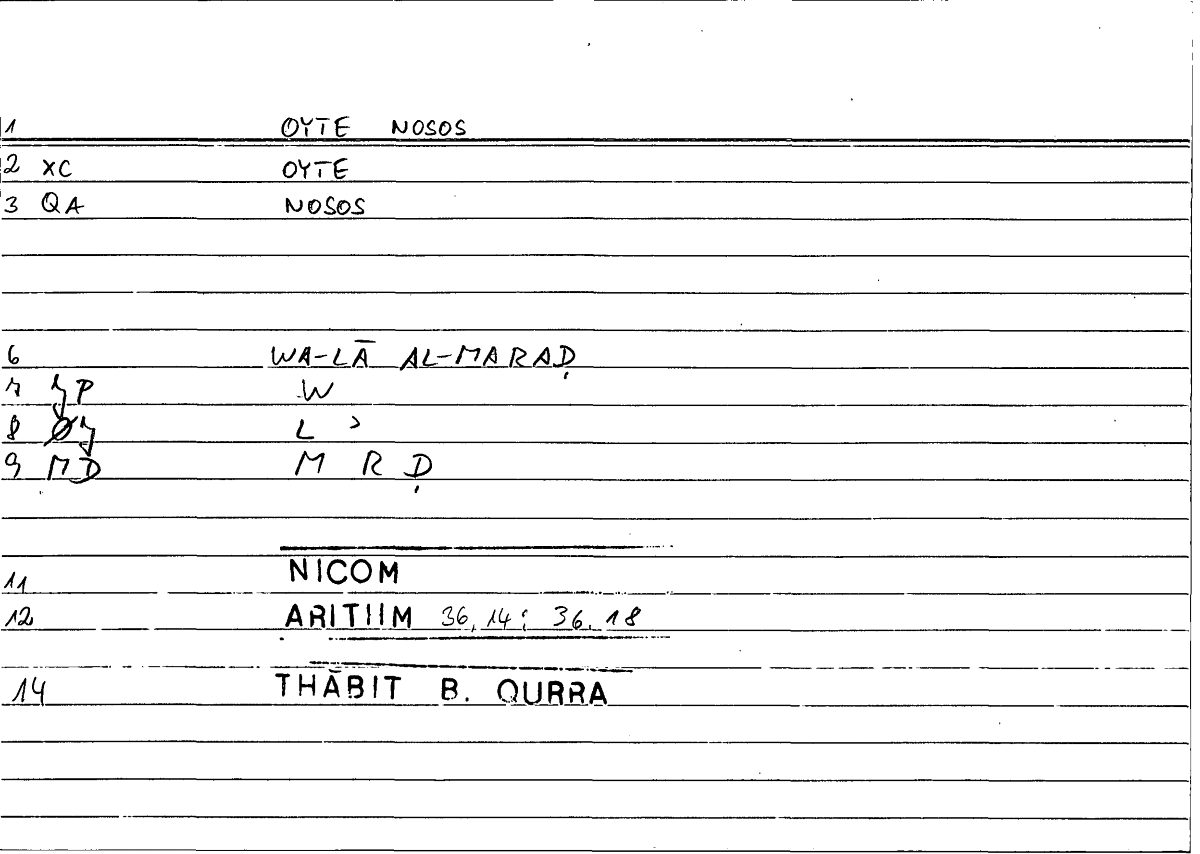 1 OYTE NOSOS
2 XC OYTE
3 QA NOSOS
6 WA-LĀ AL-MARAḌ
7 P W
8 L ʾ
9 MD M R Ḍ
11 NICOM
12 ARITIIM 36,14; 36.18
14 THĀBIT B. QURRA